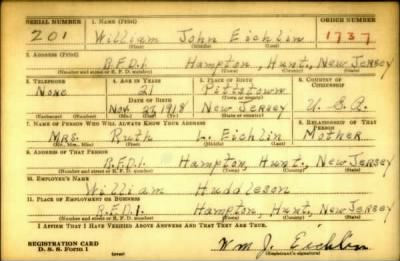 SERIAL NUMBER 1. NAME (Print) ORDER NUMBER
201 William John Eichlin 1737
(First) (Middle) (Last)
2. ADDRESS (Print)
R.F.D.1. Hampton, Hunt, New Jersey
(Number and street or R. F. D. number) (Town) (County) (State)
3. TELEPHONE 4. AGE IN YEARS 5. PLACE OF BIRTH 6. COUNTRY OF CITIZENSHIP
None 21 Pittstown
DATE OF BIRTH (Town or county)
Nov. 27, 1918 New Jersey U.S.A.
(Exchange) (Number) (Mo.) (Day) (Yr.) (State or country)
7. NAME OF PERSON WHO WILL ALWAYS KNOW YOUR ADDRESS 8. RELATIONSHIP OF THAT PERSON
Mrs. Ruth L. Eichlin Mother
(Mr., Mrs., Miss) (First) (Middle) (Last)
9. ADDRESS OF THAT PERSON
R.F.D.1. Hampton, Hunt., New Jersey
(Number and street or R. F. D. number) (Town) (County) (State)
10. EMPLOYER'S NAME
William Huddleson
11. PLACE OF EMPLOYMENT OR BUSINESS
R.F.D.1. Hampton, Hunt, New Jersey
(Number and street or R. F. D. number) (Town) (County) (State)
I AFFIRM THAT I HAVE VERIFIED ABOVE ANSWERS AND THAT THEY ARE TRUE.
REGISTRATION CARD
D. S. S. Form 1 (over) Wm J. Eichlin
(Registrant's signature)